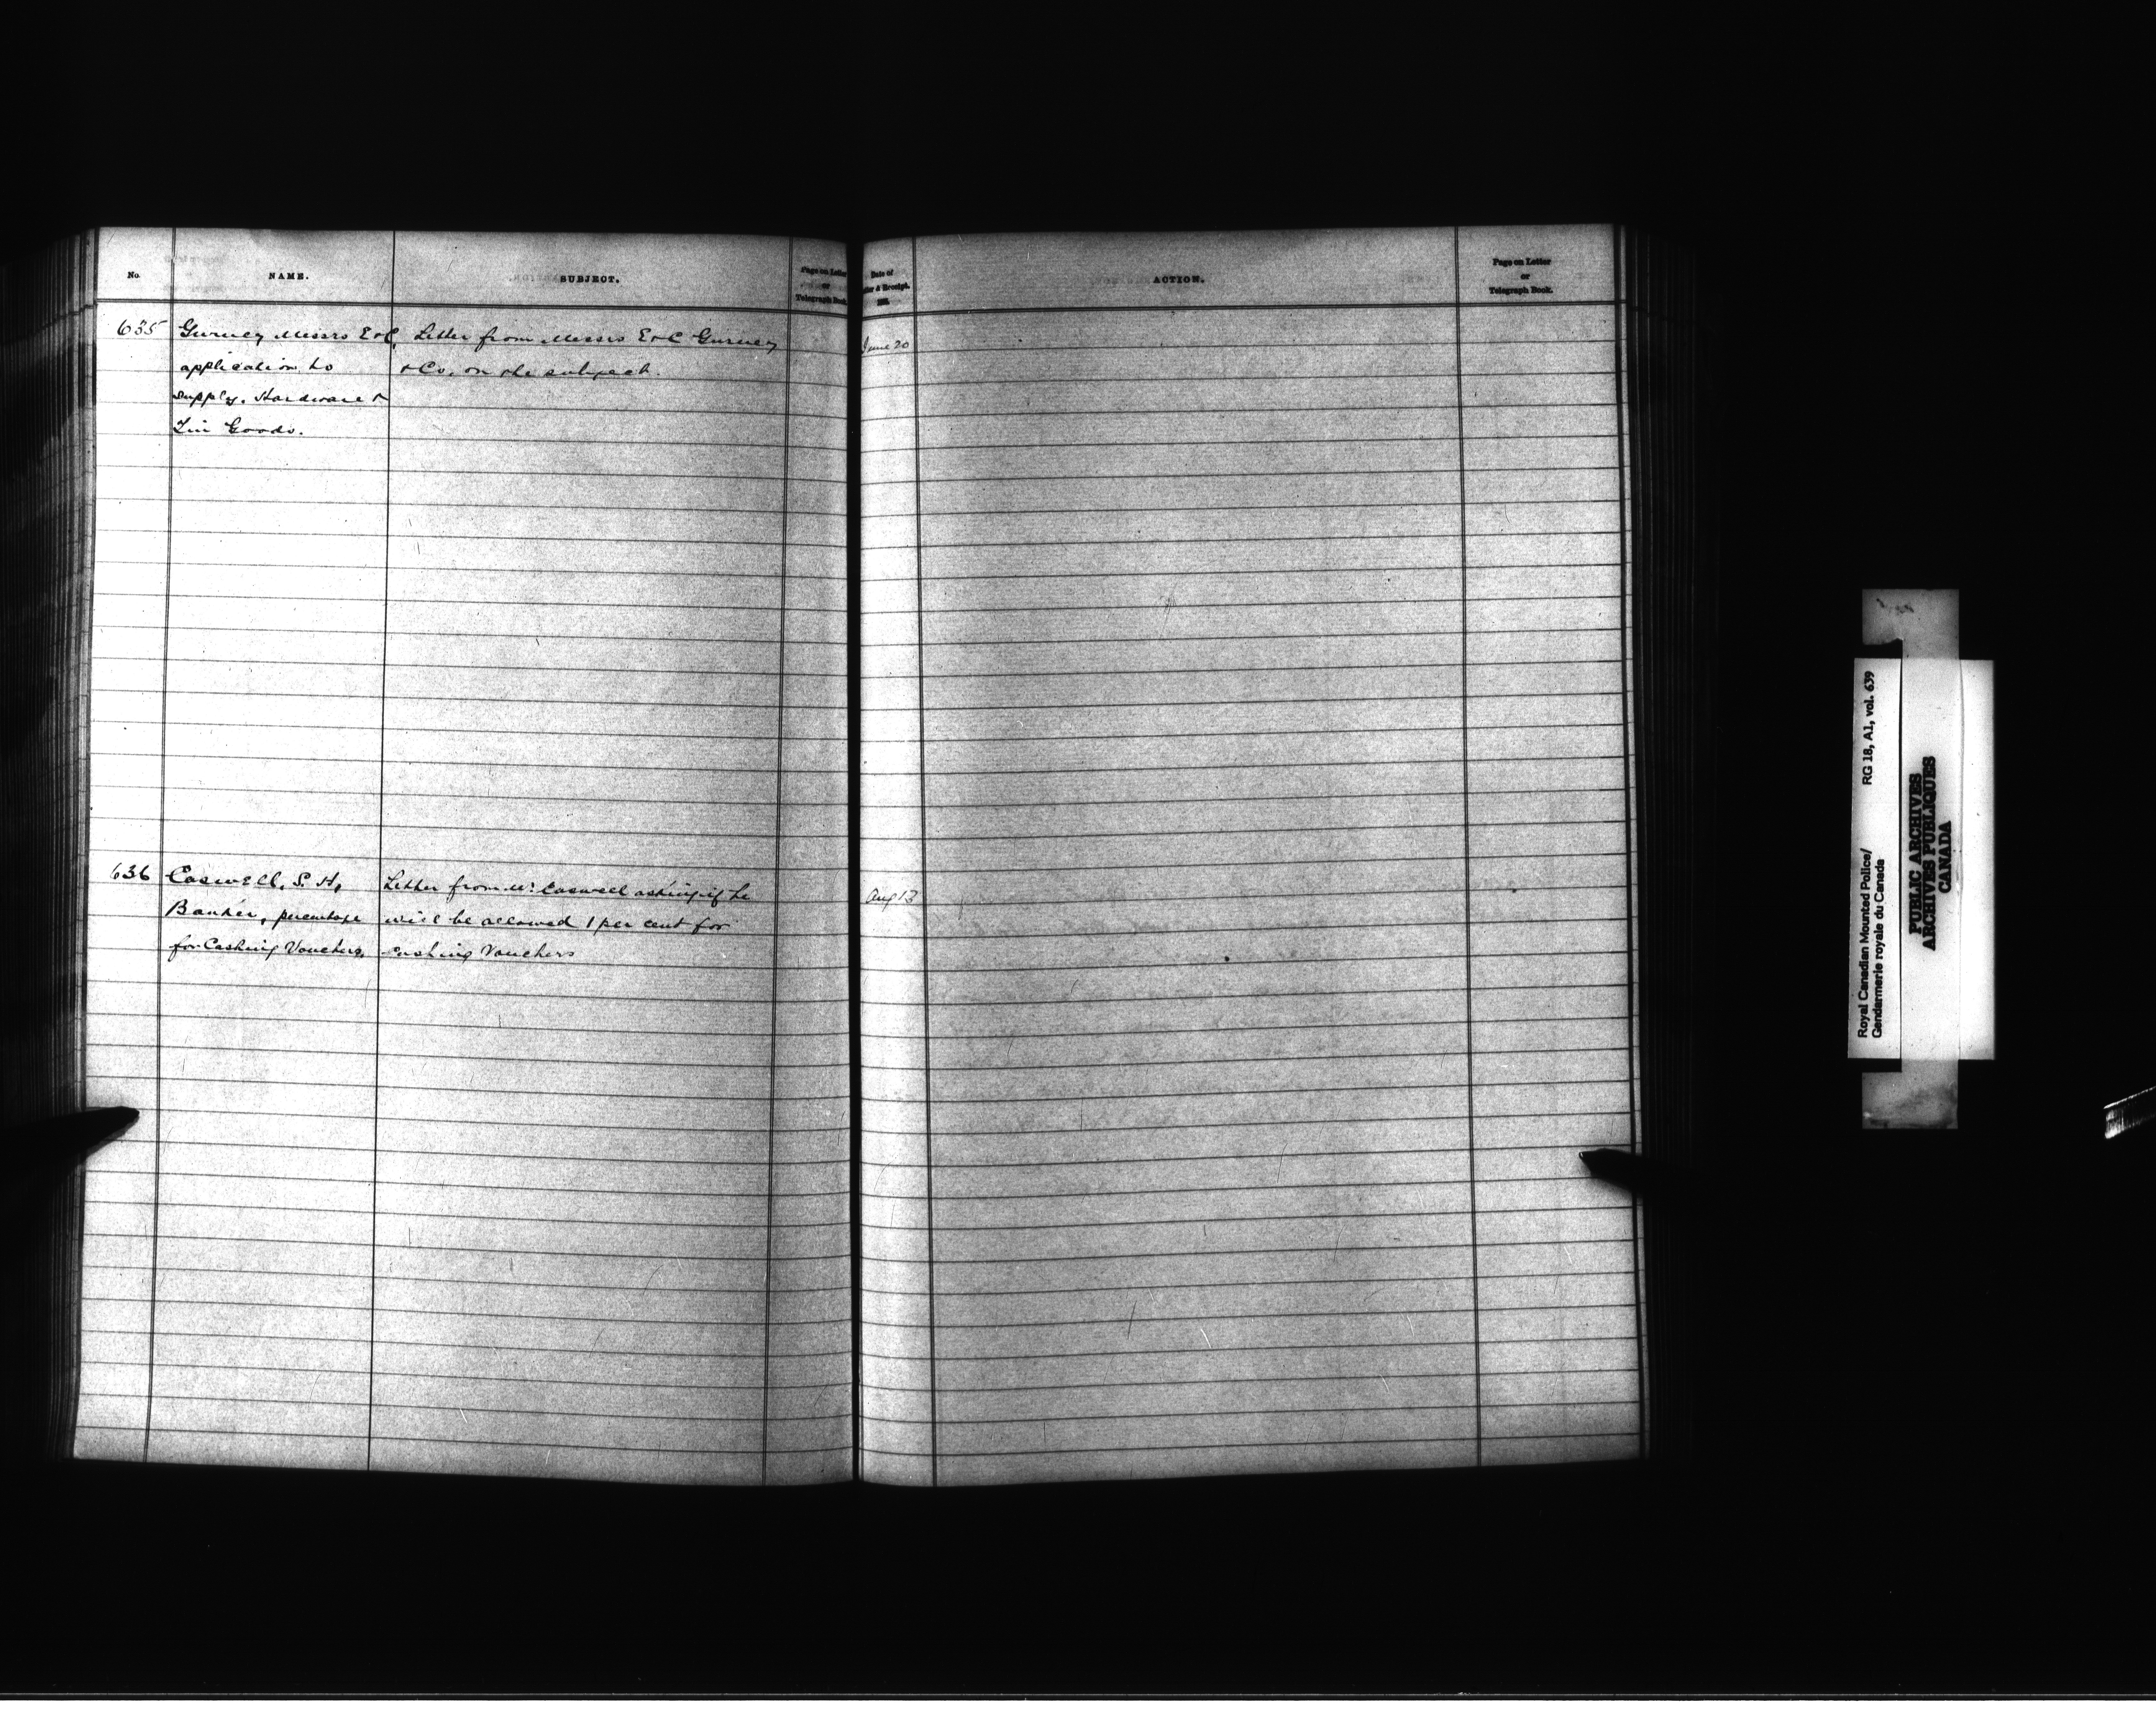 No.
NAME.
SUBJECT.
Page on Letter
or
Telegraph Book.
Date of
Letter & Receipt.
188
ACTION.
Page on Letter
or
Telegraph Book.
635
Gurney Messrs E & C,
application to
supply. Hardware &
Tin Goods.
Letter from Messrs E & C Gurney
& Co. on the subject.
June 20
636
Caswell, S. H,
Banker, percentage
for Cashing Vouchers.
Letter from Mr. Caswell asking if he
will be allowed 1 per cent for
cashing Vouchers
Aug 13
Royal Canadian Mounted Police/
Gendarmerie royale du Canada
RG 18, A1, vol. 639
PUBLIC ARCHIVES
ARCHIVES PUBLIQUES
CANADA